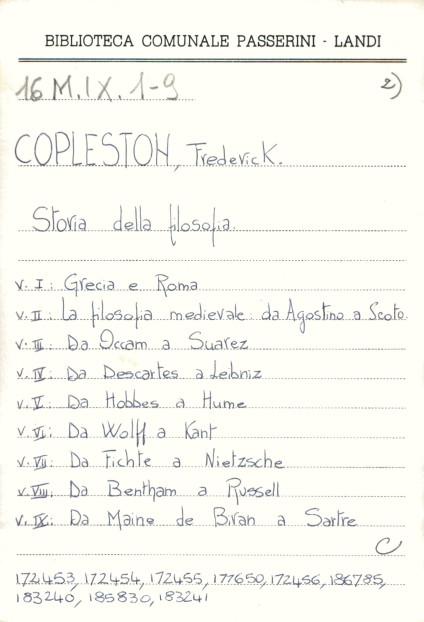 BIBLIOTECA COMUNALE PASSERINI - LANDI
16 M.IX. 1-9 2)
COPLESTON, Frederick.
Storia della filosofia.
v. I: Grecia e Roma
v. II: La filosofia medievale: da Agostino a Scoto.
v. III: Da Occam a Suarez
v. IV: Da Descartes a Leibniz
v. V: Da Hobbes a Hume
v. VI: Da Wolff a Kant
v. VII: Da Fichte a Nietzsche
v. VIII: Da Bentham a Russell
v. IX: Da Maine de Biran a Sartre
C
172453, 172454, 172455, 177650, 172456, 186785,
183240, 185830, 183241